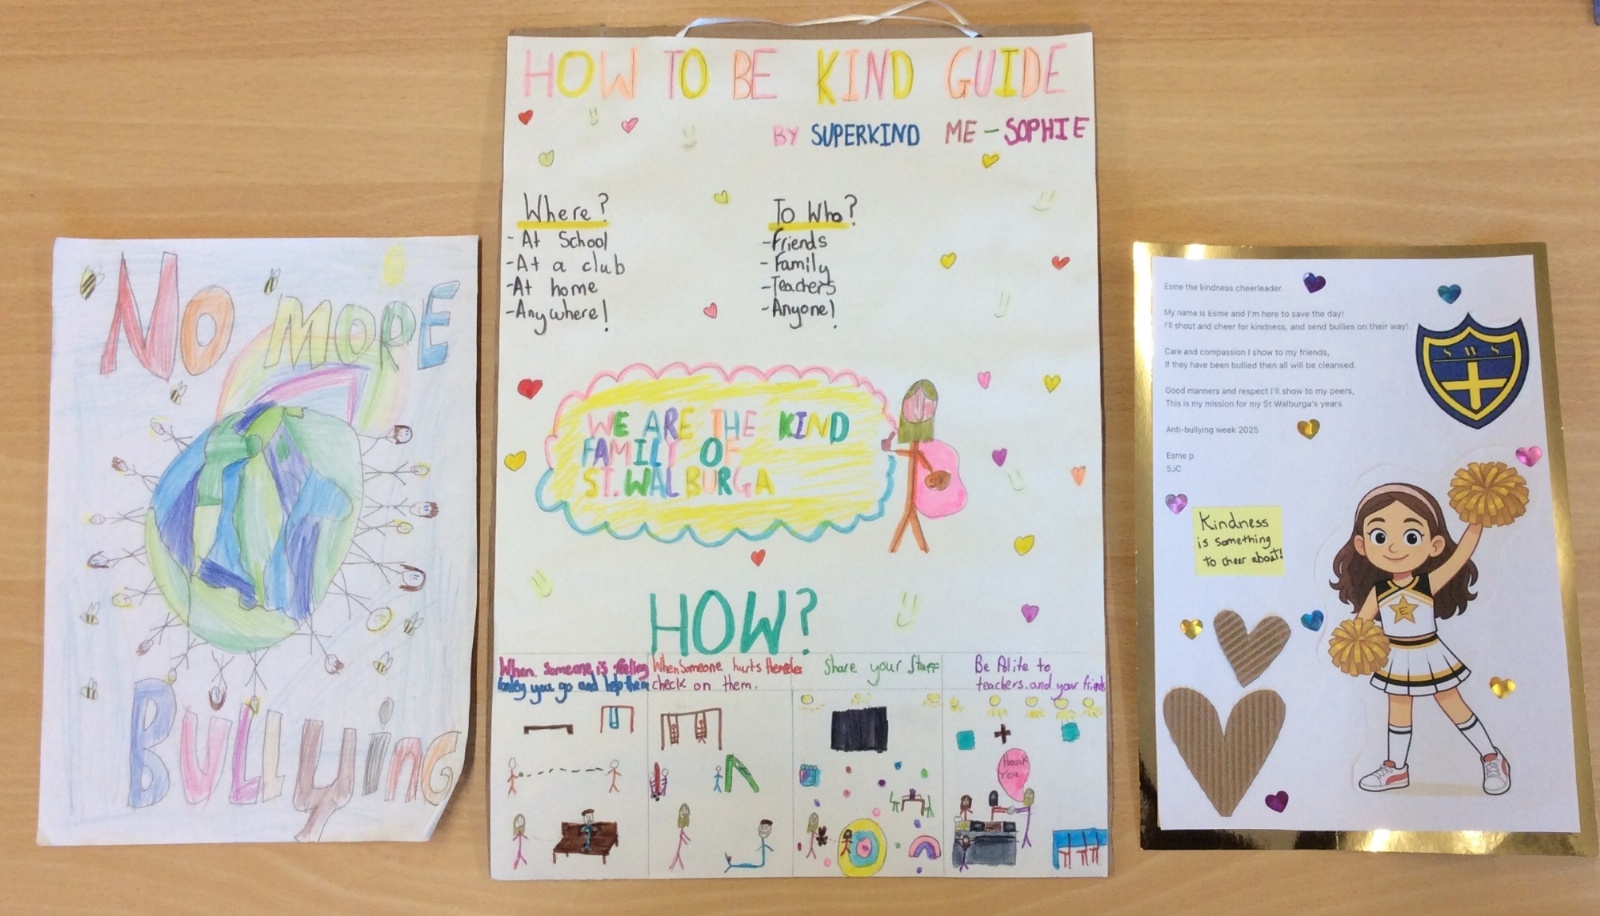 No MORE
BULLying
HOW TO BE KIND GUIDE
BY SUPERKIND ME - SOPHIE
Where?
- At School
- At a club
- At home
- Anywhere!
To Who?
- Friends
- Family
- Teachers
- Anyone!
WE ARE THE KIND
FAMILY OF
ST. WALBURGA
HOW?
When someone is feeling
lonley you go and help them
When Someone hurts themselves
check on them.
Share your Stuff
Be Polite to
teachers. and your friends
Thank
You
Esme the kindness cheerleader
My name is Esme and I'm here to save the day!
I'll shout and cheer for kindness, and send bullies on their way!
Care and compassion I show to my friends,
If they have been bullied then all will be cleansed.
Good manners and respect I'll show to my peers,
This is my mission for my St Walburga's years
Anti-bullying week 2025
Esme p
5JC
S W S
Kindness
is something
to cheer about!
E